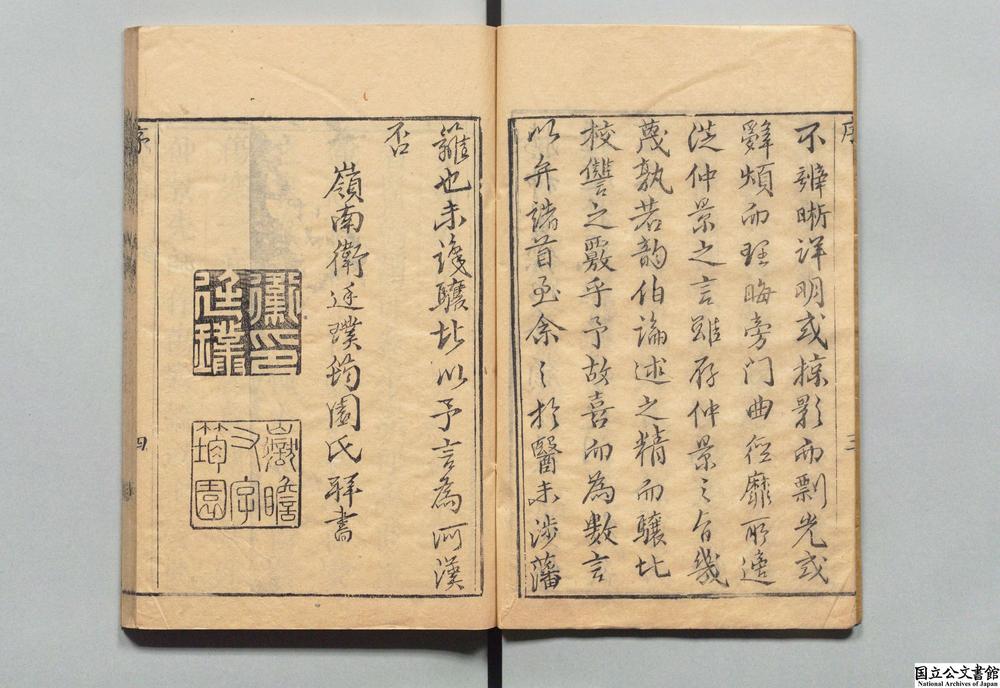 序 三
不辨晰詳明或掠影而剽光或
辭煩而理晦旁門曲徑靡所適
從仲景之言雖存仲景之旨幾
蔑孰若韵伯論述之精而驤北
校讐之覈乎予故喜而為數言
以弁諸首至余之於醫未涉藩
籬也未識驤北以予言為河漢
否
嶺南衛廷璞筠園氏拜書
衛廷璞印
嶽瞻又字筠園
序 四
国立公文書館
National Archives of Japan